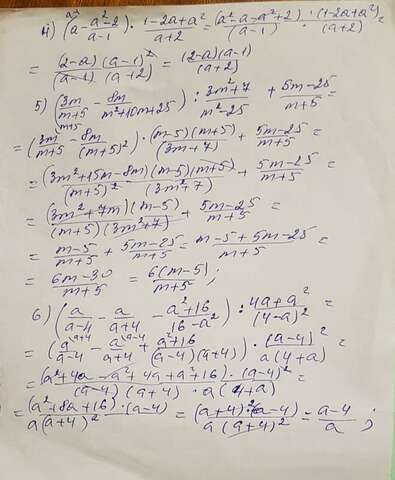 4) (a - (a²-2)/(a-1)) · (1-2a+a²)/(a+2) = (a²-a-a²+2)/(a-1) · (1-2a+a²)/(a+2) =
= (2-a)(a-1)²/((a-1)(a+2)) = (2-a)(a-1)/(a+2)
5) (3m/(m+5) - 8m/(m²+10m+25)) : (3m²+7)/(m²-25) + (5m-25)/(m+5) =
= (3m/(m+5) - 8m/(m+5)²) · (m-5)(m+5)/(3m+7) + (5m-25)/(m+5) =
= (3m²+15m-8m)(m-5)(m+5)/((m+5)²(3m²+7)) + (5m-25)/(m+5) =
= (3m²+7m)(m-5)/((m+5)(3m²+7)) + (5m-25)/(m+5) =
= (m-5)/(m+5) + (5m-25)/(m+5) = (m-5+5m-25)/(m+5) =
= (6m-30)/(m+5) = 6(m-5)/(m+5);
6) (a/(a-4) - a/(a+4) - (a²+16)/(16-a²)) : (4a+a²)/(4-a)² =
= (a/(a-4) - a/(a+4) + (a²+16)/((a-4)(a+4))) · (a-4)²/(a(4+a)) =
= (a²+4a-a²+4a+a²+16)·(a-4)²/((a-4)(a+4)·a(4+a)) =
= (a²+8a+16)·(a-4)/(a(a+4)²) = (a+4)²(a-4)/(a(a+4)²) = (a-4)/a;